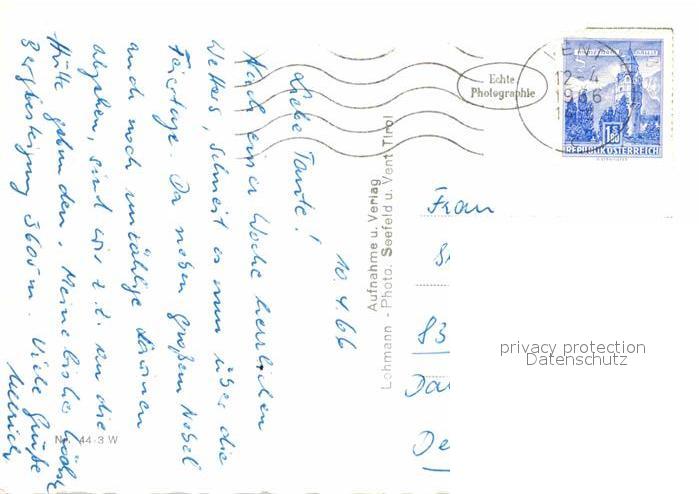 10.4.66
Liebe Tante!
Nach einer Woche herrlichen
Wetters, schneit es nun über die
Feiertage. Da neben großem Nebel
auch noch unzählige Lawinen
abgehen, sind wir z.Z. an die
Hütte gebunden. Meine bisher höchste
Bergbesteigung 3600 m. Viele Grüße
Ullrich
No. 44-3 W
Aufnahme u. Verlag
Lohmann - Photo. Seefeld u. Vent Tirol
Echte
Photographie
VENT
12-4
1966
S 1.80
REPUBLIK ÖSTERREICH
Frau
83
Da
De
privacy protection
Datenschutz